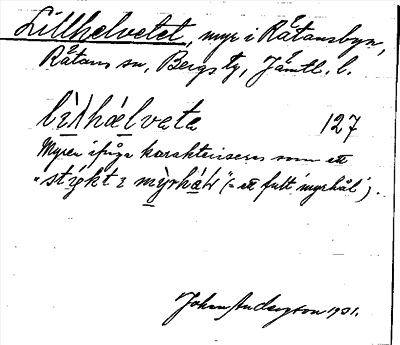 Lillhelvetet, myr i Råtansbyn,
Råtans sn, Bergs tg, Jämtl. l.
lìlhælvata 127
Myren ifråga karakteriseras som ett
"stýkt mỳrhál" (= ett fult 'myrhål').
Johan Andersson 1931.